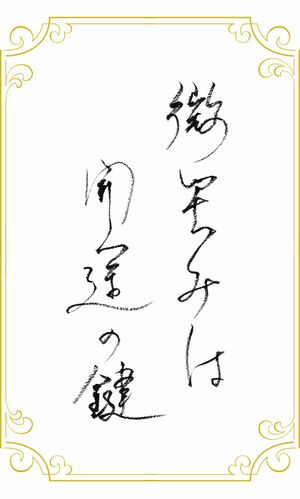 微笑みは
開運の鍵